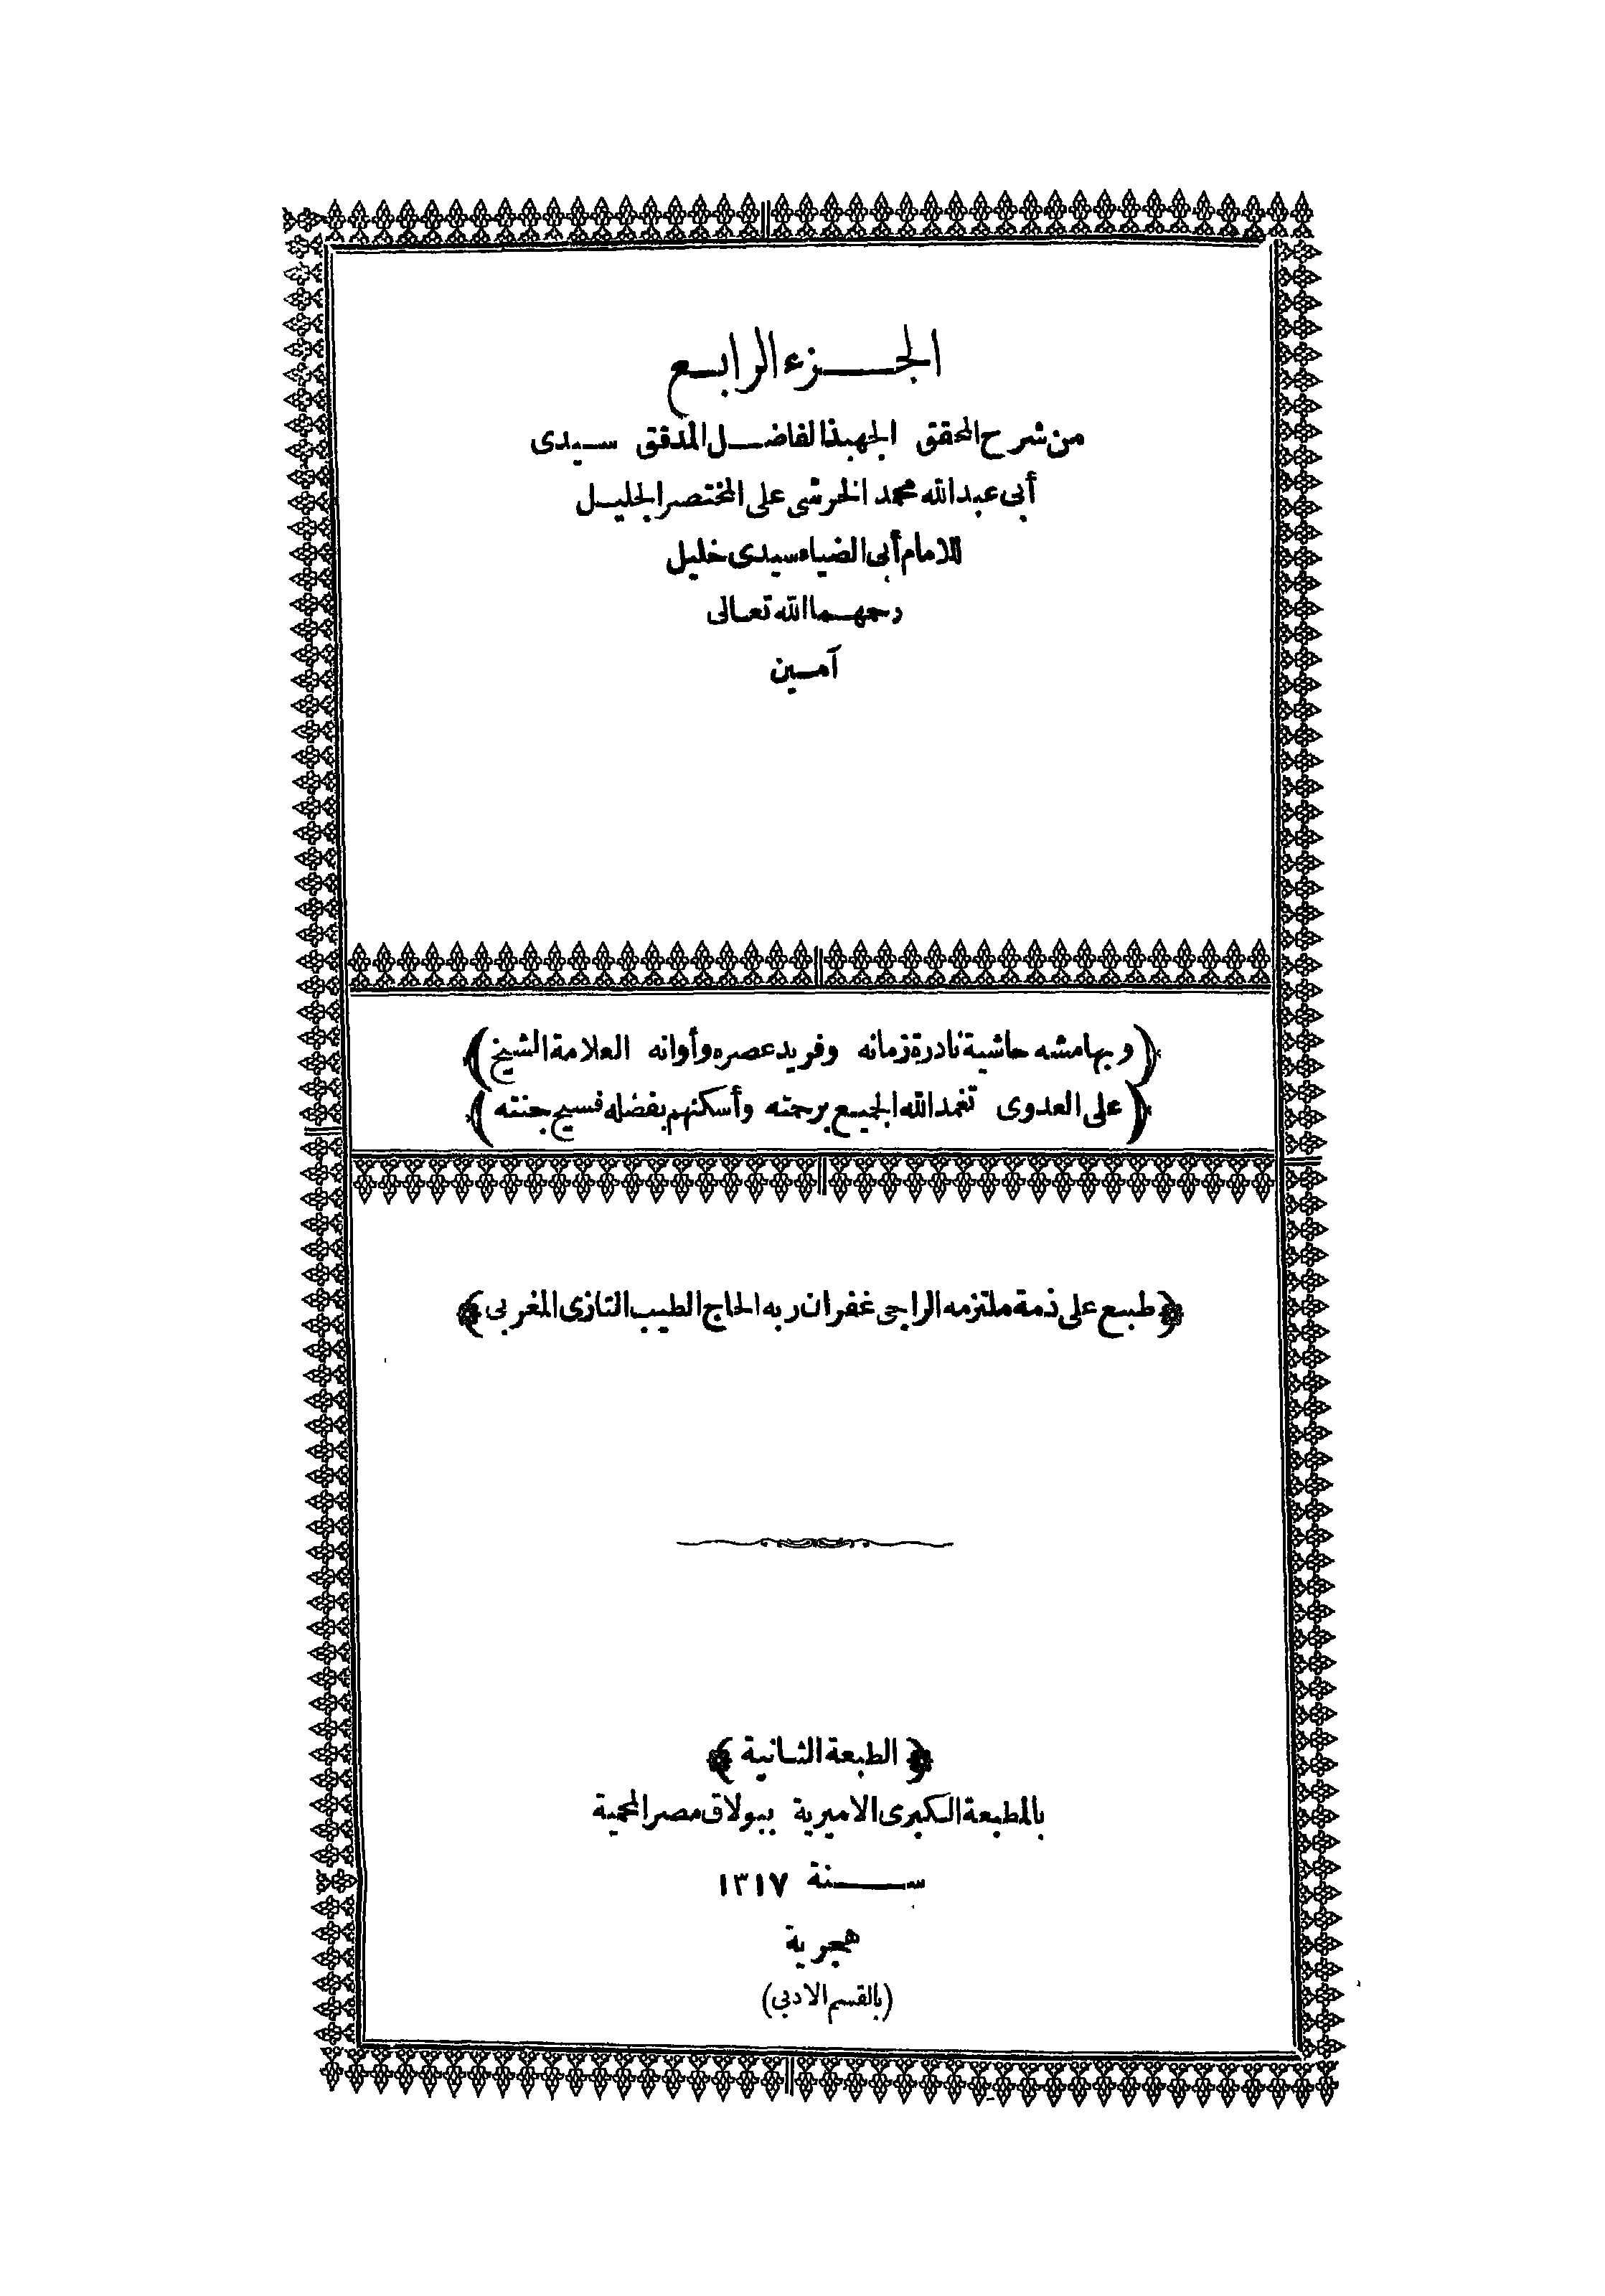 الجزء الرابع
من شرح المحقق الجهبذ الفاضل المدقق سيدى
أبى عبد الله محمد الخرشى على المختصر الجليل
للامام أبى الضياء سيدى خليل
رحمهما الله تعالى
آمين
(وبهامشه حاشية نادرة زمانه وفريد عصره وأوانه العلامة الشيخ)
(على العدوى تغمد الله الجميع برحمته وأسكنهم بفضله فسيح جنته)
(طبع على ذمة ملتزمه الراجى غفران ربه الحاج الطيب التازى المغربى)
(الطبعة الثانية)
بالمطبعة الكبرى الاميرية ببولاق مصر المحمية
سنة ١٣١٧
هجرية
(بالقسم الادبى)